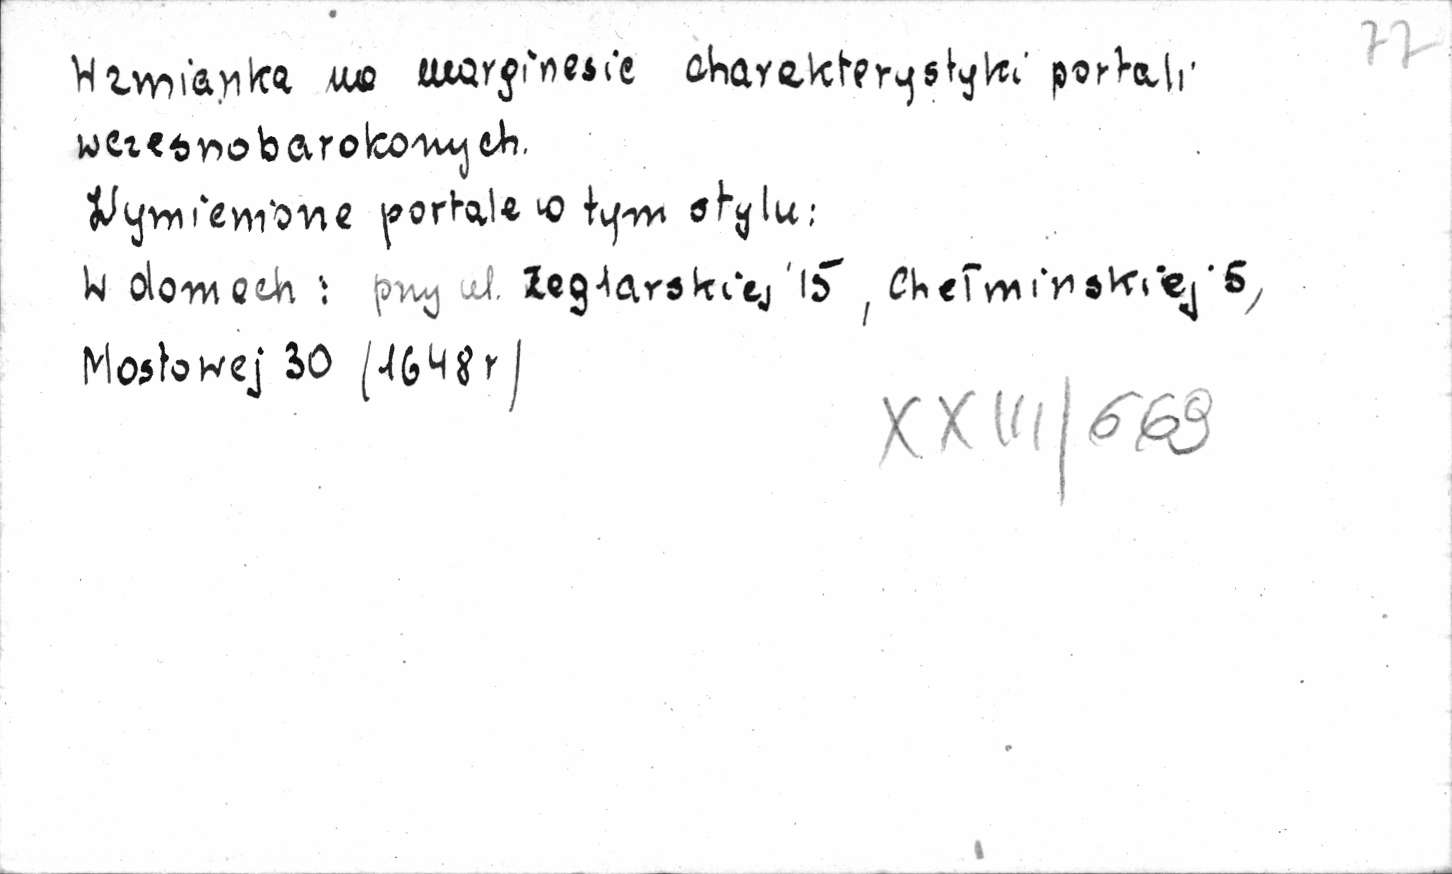 77
Wzmianka na marginesie charakterystyki portali
wczesnobarokowych.
Wymienione portale w tym stylu:
W domach : przy ul. Żeglarskiej 15, Chełminskiej 5,
Mostowej 30 /1648 r/
XXIII/669